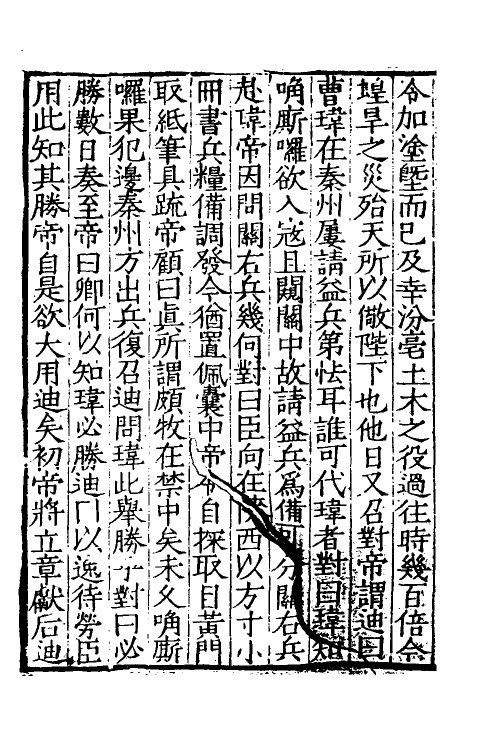 令加塗塈而已及幸汾亳土木之役過往時幾百倍今
蝗旱之災殆天所以儆陛下也他日又召對帝謂迪曰
曹瑋在秦州屢請益兵第怯耳誰可代瑋者對曰瑋知
唃厮囉欲入寇且闚關中故請益兵爲備可分關右兵
赴瑋帝因問關右兵幾何對曰臣向在陝西以方寸小
冊書兵糧備調發今猶置佩囊中帝令自探取目黃門
取紙筆具疏帝顧曰眞所謂頗牧在禁中矣未久唃厮
囉果犯邊秦州方出兵復召迪問瑋此舉勝乎對曰必
勝數日奏至帝曰卿何以知瑋必勝迪曰以逸待勞臣
用此知其勝帝自是欲大用迪矣初帝將立章獻后迪